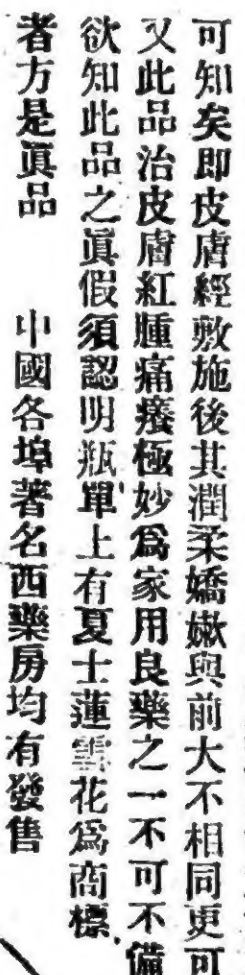 可知矣即皮膚經敷施後其潤柔嬌嫩與前大不相同更可
又此品治皮膚紅腫痛癢極妙爲家用良藥之一不可不備
欲知此品之眞假須認明瓶單上有夏士蓮雪花爲商標
者方是眞品　中國各埠著名西藥房均有發售